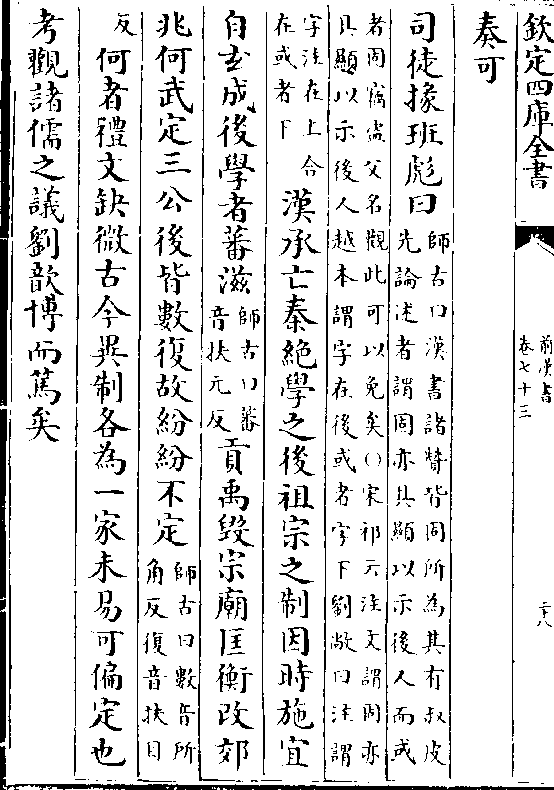 欽定四庫全書
前漢書
卷七十三
二十八
奏可
司徒掾班彪曰師古曰漢書諸贊皆固所為其有叔皮
先論述者謂固亦具顯以示後人而或
者固竊盜父名觀此可以免矣〇宋祁云注文謂固亦
具顯以示後人越本謂字在後或者字下劉敞曰注謂
字注在上合
在或者下
漢承亡秦絶學之後祖宗之制因時施宜
自元成後學者蕃滋師古曰蕃
音扶元反
貢禹毁宗廟匡衡改郊
兆何武定三公後皆數復故紛紛不定師古曰數音所
角反復音扶目
反
何者禮文缺微古今異制各為一家未易可偏定也
考觀諸儒之議劉歆博而篤矣